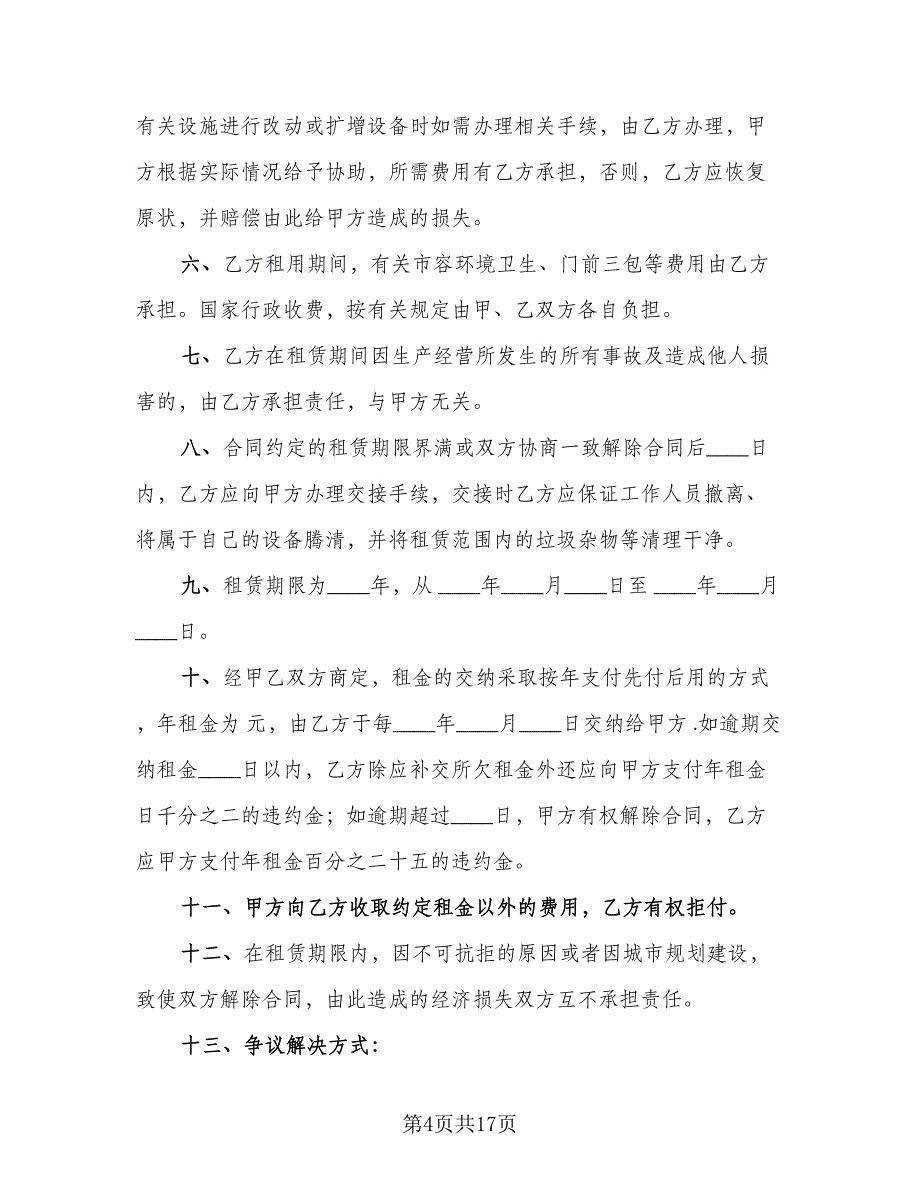 有关设施进行改动或扩增设备时如需办理相关手续，由乙方办理，甲
方根据实际情况给予协助，所需费用有乙方承担，否则，乙方应恢复
原状，并赔偿由此给甲方造成的损失。
六、乙方租用期间，有关市容环境卫生、门前三包等费用由乙方
承担。国家行政收费，按有关规定由甲、乙双方各自负担。
七、乙方在租赁期间因生产经营所发生的所有事故及造成他人损
害的，由乙方承担责任，与甲方无关。
八、合同约定的租赁期限界满或双方协商一致解除合同后____日
内，乙方应向甲方办理交接手续，交接时乙方应保证工作人员撤离、
将属于自己的设备腾清，并将租赁范围内的垃圾杂物等清理干净。
九、租赁期限为____年，从 ____年____月____日至 ____年____月
____日。
十、经甲乙双方商定，租金的交纳采取按年支付先付后用的方式
，年租金为 元，由乙方于每____年____月____日交纳给甲方 .如逾期交
纳租金____日以内，乙方除应补交所欠租金外还应向甲方支付年租金
日千分之二的违约金；如逾期超过____日，甲方有权解除合同，乙方
应甲方支付年租金百分之二十五的违约金。
十一、甲方向乙方收取约定租金以外的费用，乙方有权拒付。
十二、在租赁期限内，因不可抗拒的原因或者因城市规划建设，
致使双方解除合同，由此造成的经济损失双方互不承担责任。
十三、争议解决方式：
第4页共17页